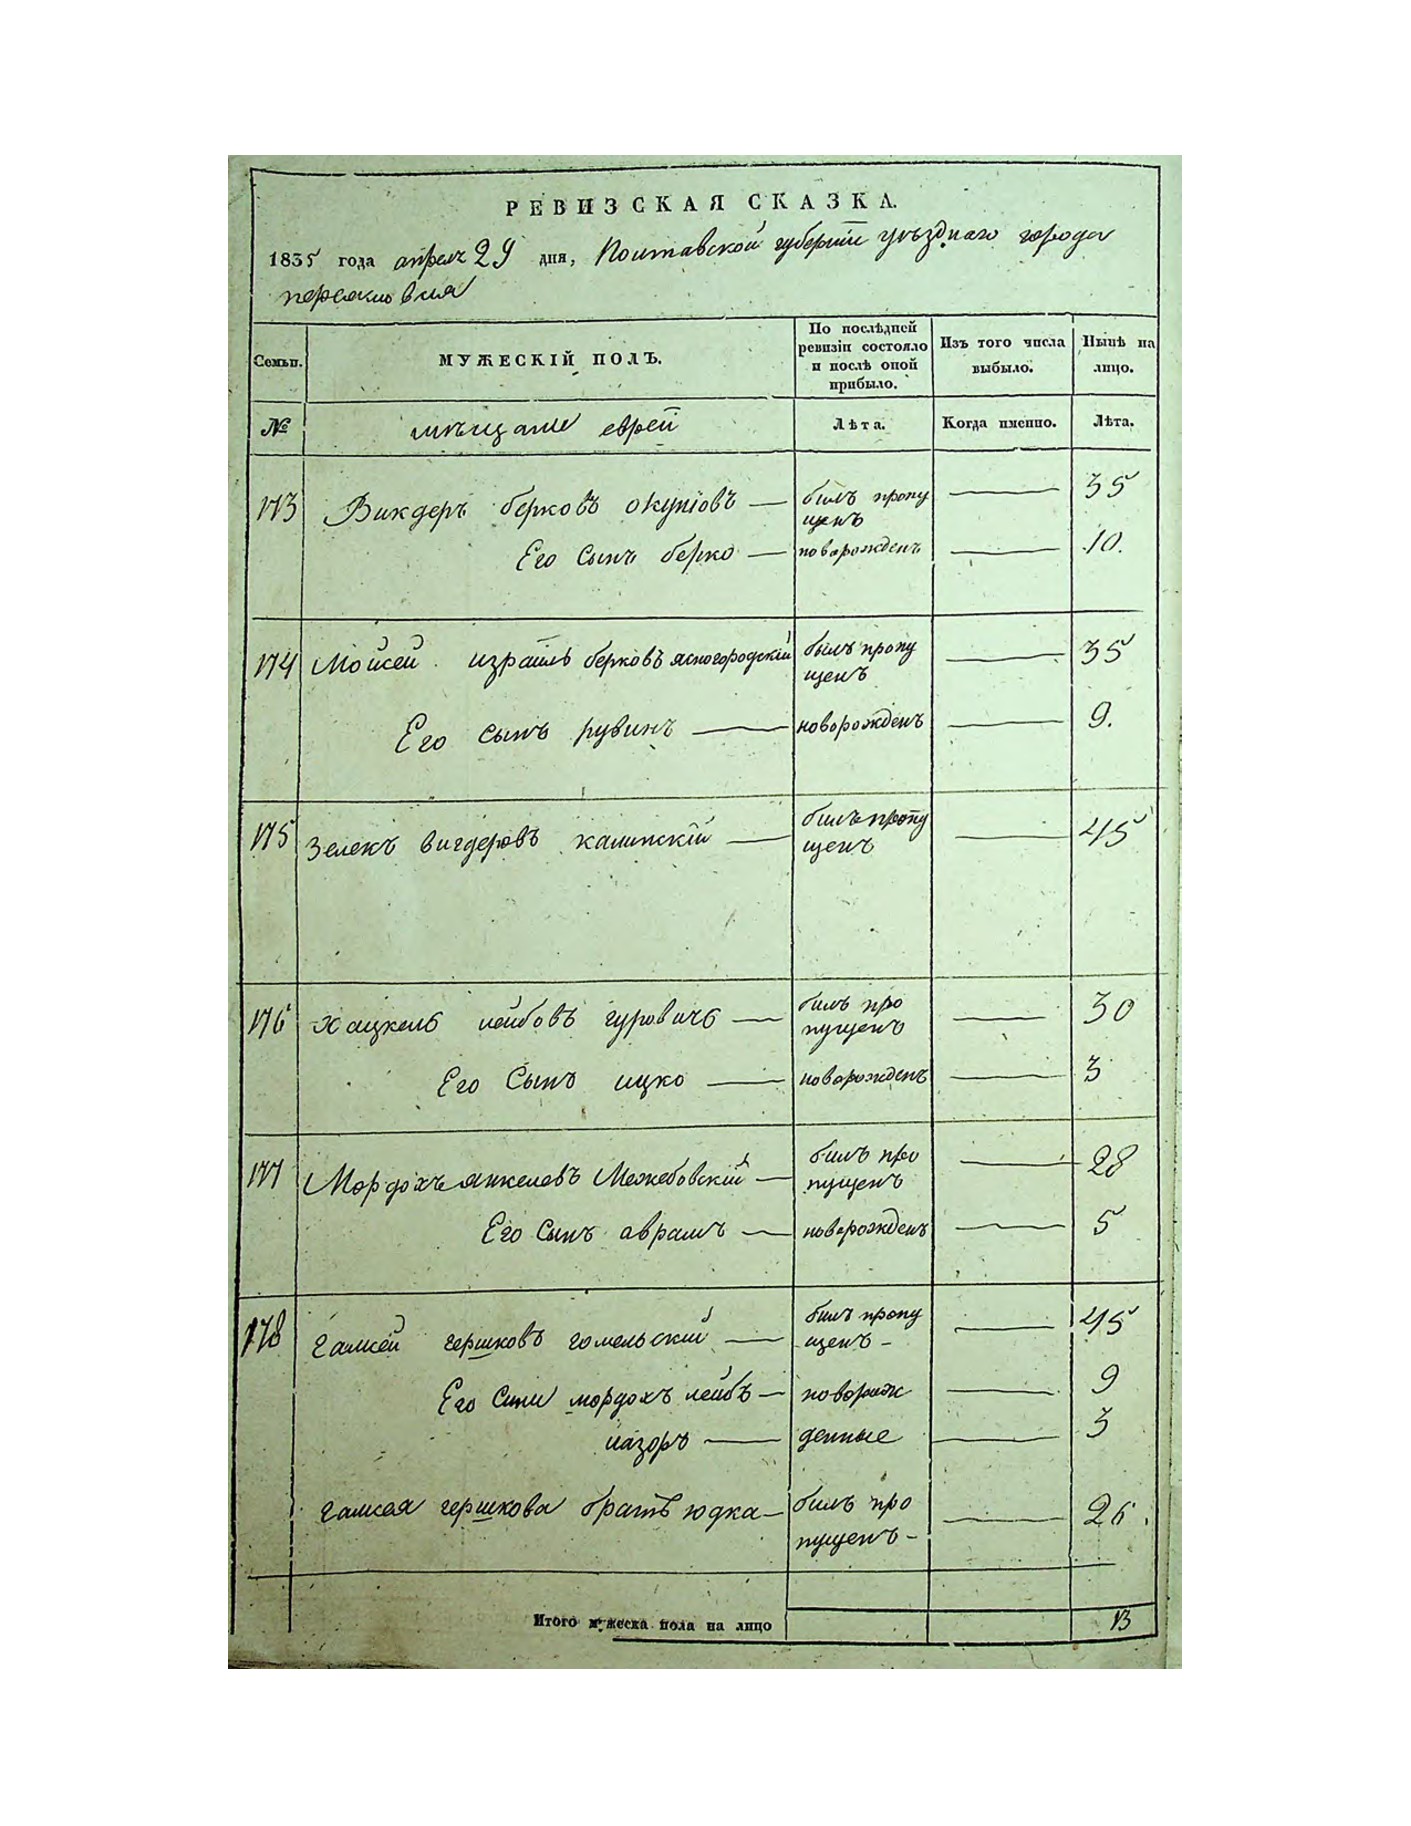 РЕВИЗСКАЯ СКАЗКА.
1835 года апреля 29 дня, Полтавской губернїи уѣзднаго города
переяславля
Семьи.
МУЖЕСКІЙ ПОЛЪ.
По послѣдней
ревизіи состояло
и послѣ оной
прибыло.
Изъ того числа
выбыло.
Нынѣ на
лицо.
№
мѣщане еврей
Лѣта.
Когда именно.
Лѣта.
173 Викдеръ берковъ окупіовъ — билъ пропу — 35
щенъ
Его Сынъ берко — новорожденъ — 10.
174 Моисей израиль берковъ ясногородскій былъ пропу — 35
щенъ
Его сынъ рувинъ — новорожденъ — 9.
175 Зелекъ вигдеровъ калинскій — билъ пропу — 45
щенъ
176 хацкель лейбовъ гуровичь — билъ про — 30
пущенъ
Его Сынъ ицко — новорожденъ — 3
177 Мордохъ янкелевъ Межебовскій — билъ про — 28
пущенъ
Его Сынъ аврамъ — новорожденъ — 5
178 гамсей гершковъ гомельскій — билъ пропу — 45
щенъ –
Его Сини мордохъ лейбъ — новорож — 9
лазоръ — денные — 3
гамсея гершкова братъ юдка — билъ про — 26.
пущенъ –
Итого мужеска пола на лицо 13